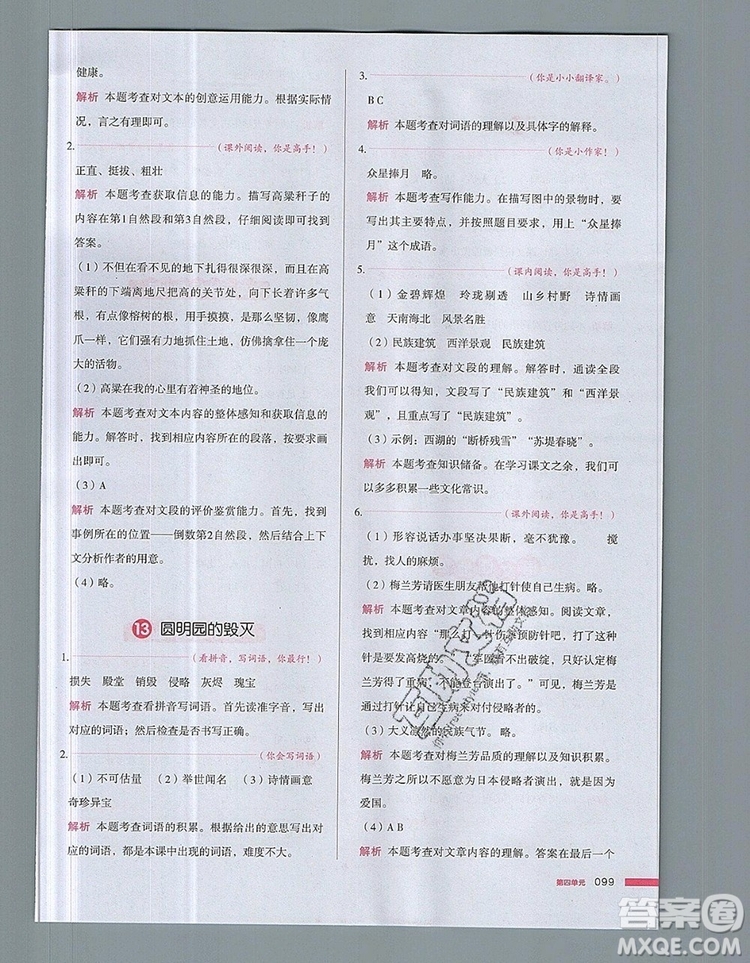 健康。
解析 本题考查对文本的创意运用能力。根据实际情
况，言之有理即可。
2.
（课外阅读，你是高手！）
正直、挺拔、粗壮
解析 本题考查获取信息的能力。描写高粱秆子的
内容在第1自然段和第3自然段，仔细阅读即可找到
答案。
（1）不但在看不见的地下扎得很深很深，而且在高
粱秆的下端离地尺把高的关节处，也伸展着许多气
根，有点像榕树的根，用手摸摸，是那么坚韧，像鹰
爪一样，它们强有力地抓住土地，仿佛擒拿住一个庞
大的活物。
（2）高粱在我的心里有着神圣的地位。
解析 本题考查对文本内容的整体感知和获取信息的
能力。解答时，找到相对应内容所在的段落，按要求
答题即可。
（3）A
解析 本题考查对文段的评价鉴赏能力。首先，找到
事例所在的位置——倒数第2自然段，然后结合上下
文分析作者的用意。
（4）略。
13 圆明园的毁灭
1.
（看拼音，写词语，你最行！）
损失 殿堂 销毁 侵略 灰烬 瑰宝
解析 本题考查看拼音写词语。首先读准字音，写出
对应的词语；然后检查是否书写正确。
2.
（你会写词语）
（1）不可估量 （2）举世闻名 （3）诗情画意
奇珍异宝
解析 本题考查词语的积累。根据给出的意思写出对
应的词语，都是本课中出现过的词语，难度不大。
3.
（你是小小翻译家。）
B C
解析 本题考查对词语的理解以及具体字的解释。
4.
（你是小作家！）
众星捧月 略。
解析 本题考查写作能力。在描写图中的景物时，要
抓住其主要特点，并按照题目要求，用上“众星捧
月”这个成语。
5.
（课内阅读，你是高手！）
（1）金碧辉煌 玲珑剔透 山乡村野 诗情画
意 天南海北 风景名胜
（2）民族建筑 西洋景观 民族建筑
解析 本题考查对文段的理解。解答时，通读全段
我们可以看到，文段写了“民族建筑”和“西洋景
观”，并且先写了“民族建筑”。
（3）示例：西湖的“断桥残雪”“苏堤春晓”。
解析 本题考查知识储备。在学习课文之余，我们可
以多多积累一些文化常识。
6.
（课外阅读，你是高手！）
（1）形容说话办事坚决果断，毫不犹豫。 搅
扰，找人的麻烦。
（2）梅兰芳请医生朋友帮他打针使自己生病。略。
解析 本题考查对文章内容的整体感知。阅读文章，
（3）大义凛然的民族气节。略。
解析 本题考查对梅兰芳品质的理解以及知识积累。
梅兰芳之所以不愿意为日本侵略者演出，就是因为
爱国。
（4）A B
解析 本题考查对文章内容的理解。答案在最后一个
第四单元 099
答案圈
MXQE.COM